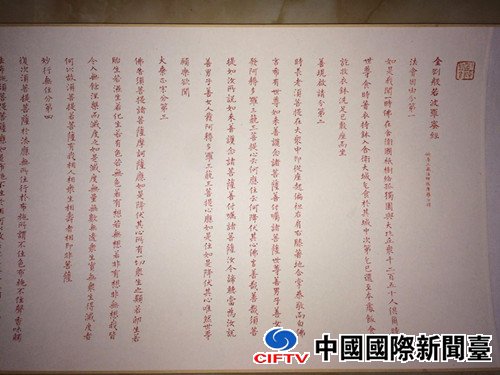 金剛般若波羅蜜經
法會因由分第一
如是我聞一時佛在舍衛國祇樹給孤獨園與大比丘眾千二百五十人俱爾時
世尊食時著衣持鉢入舍衛大城乞食於其城中次第乞已還至本處飯食
訖收衣鉢洗足已敷座而坐
善現啟請分第二
時長老須菩提在大眾中即從座起偏袒右肩右膝著地合掌恭敬而白佛
言希有世尊如來善護念諸菩薩善付囑諸菩薩世尊善男子善女人
發阿耨多羅三藐三菩提心云何應住云何降伏其心佛言善哉善哉須菩
提如汝所說如來善護念諸菩薩善付囑諸菩薩汝今諦聽當為汝說
善男子善女人發阿耨多羅三藐三菩提心應如是住如是降伏其心唯然世尊
願樂欲聞
大乘正宗分第三
佛告須菩提諸菩薩摩訶薩應如是降伏其心所有一切眾生之類若卵生若
胎生若濕生若化生若有色若無色若有想若無想若非有想非無想我皆
令入無餘涅槃而滅度之如是滅度無量無數無邊眾生實無眾生得滅度者
何以故須菩提若菩薩有我相人相眾生相壽者相即非菩薩
妙行無住分第四
復次須菩提菩薩於法應無所住行於布施所謂不住色布施不住聲香味觸
CIFTV
中國國際新聞臺